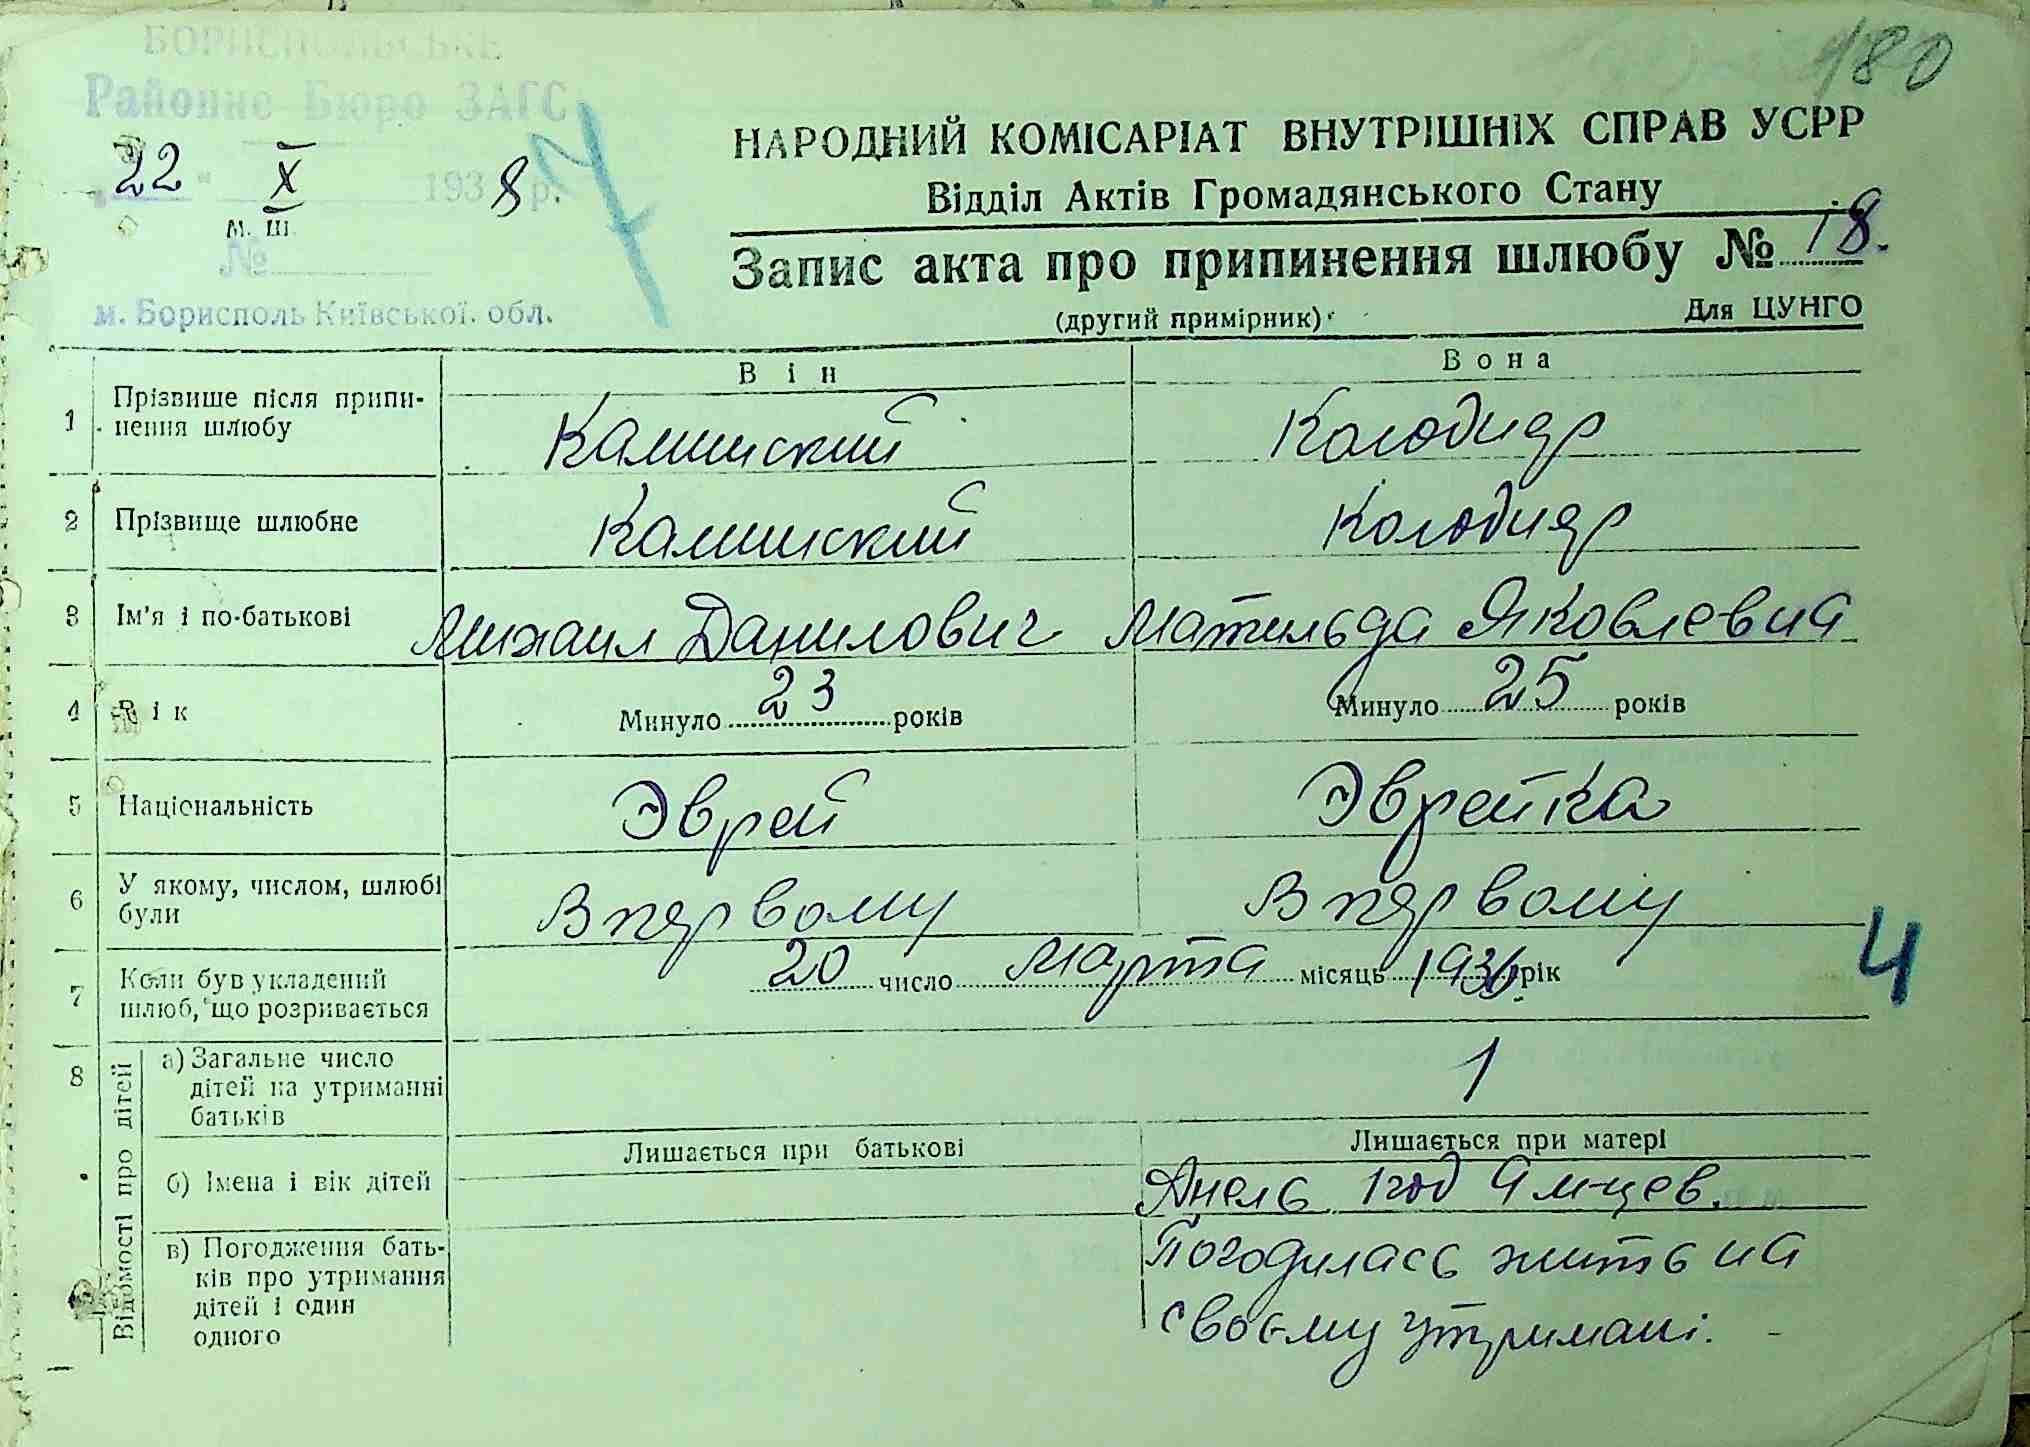 180
БОРИСПОЛЬСЬКЕ
Районне Бюро ЗАГС
7
„22" X 1938 р.
м. ІІІ.
№
м. Бориспіль Київської. обл.
НАРОДНИЙ КОМІСАРІАТ ВНУТРІШНІХ СПРАВ УСРР
Відділ Актів Громадянського Стану
Запис акта про припинення шлюбу № 18.
(другий примірник) Для ЦУНГО
Він Вона
1 Прізвище після припи-
нення шлюбу Каминский Колодняр
2 Прізвище шлюбне Каминский Колодняр
3 Ім'я і по-батькові Михаил Данилович Матильда Яковлевна
4 Вік Минуло 23 років Минуло 25 років
5 Національність Эврей Эврейка
6 У якому, числом, шлюбі
були В первому В первому
7 Коли був укладений
шлюб, що розривається 20 число Марта місяць 1936 рік
8 Відомості про дітей
а) Загальне число
дітей на утриманні
батьків 1
4
Лишається при батькові Лишається при матері
б) Імена і вік дітей 1 год 9 м-цев.
в) Погодження бать-
ків про утримання
дітей і один
одного
Погодилась жить на
своєму утримані.